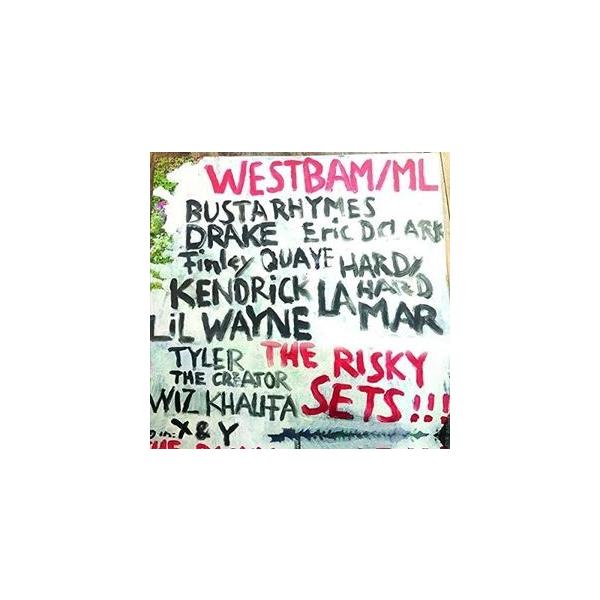 WESTBAM/ML
BUSTA RHYMES
DRAKE Eric D CLARK
Finley QUAYE HARD/
HARD
KENDRICK LAMAR
LiL WAYNE
TYLER THE RISKY
THE CREATOR
WIZ KHALIFA SETS!!!
X & Y